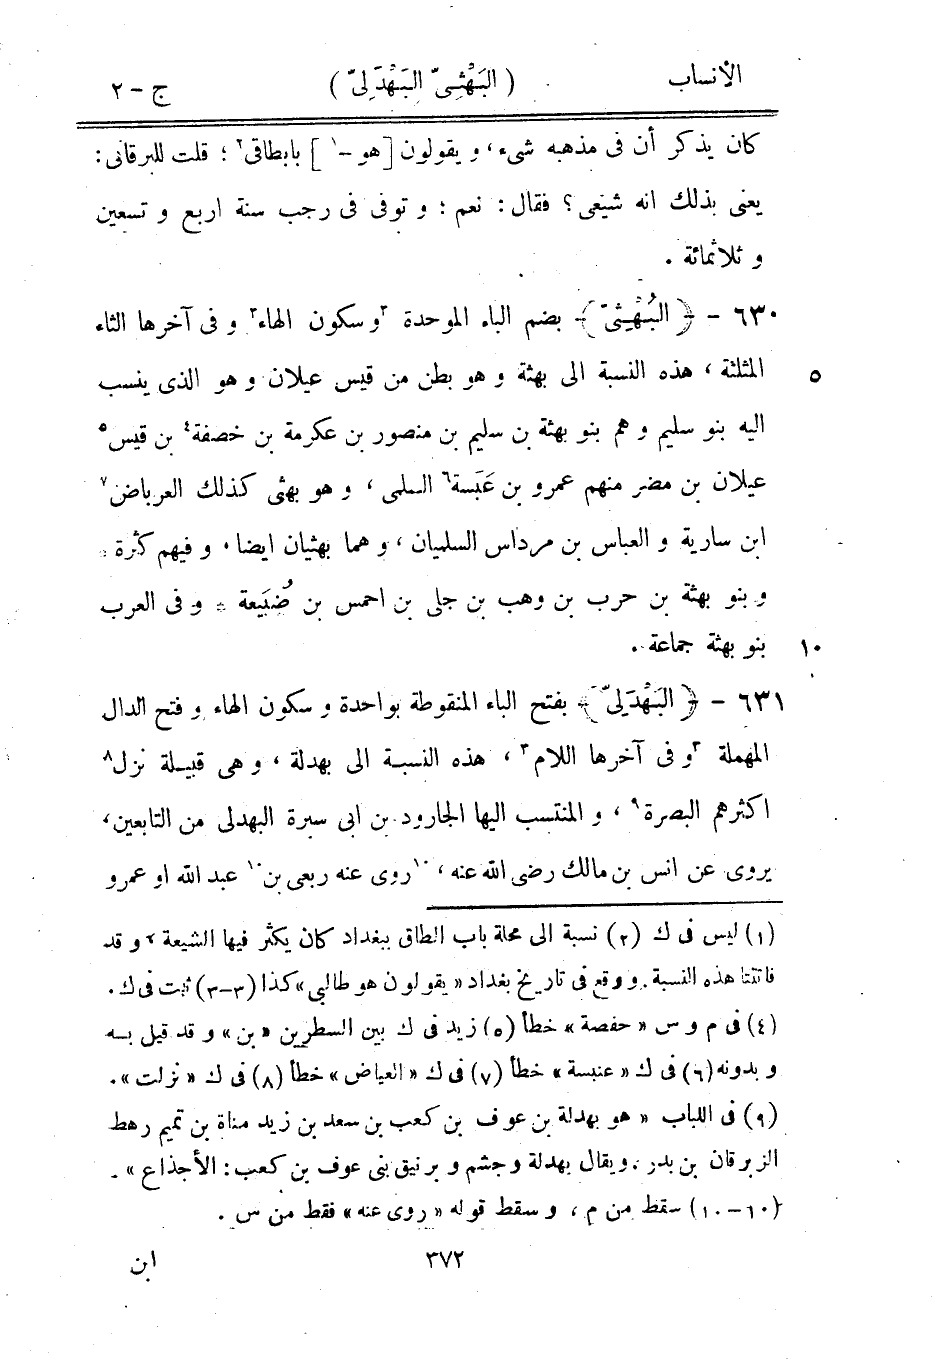 الأنساب ( البَهْثِىّ البَهْدَلِىّ ) ج - ٢
كان يذكر أن فى مذهبه شىء، و يقولون [ هو -١ ] بابطاقى٢ ؛ قلت للبرقانى :
يعنى بذلك انه شيعى ؟ فقال : نعم ؛ و توفى فى رجب سنة اربع و تسعين
و ثلاثمائة .
٦٣٠ - ﴿ البُهْثِىّ ﴾ بضم الباء الموحدة ٣و سكون الهاء٣ و فى آخرها الثاء
المثلثة ، هذه النسبة الى بهثة و هو بطن من قيس عيلان و هو الذى ينسب ٥
اليه بنو سليم و هم بنو بهثة بن سليم بن منصور بن عكرمة بن خصفة٤ بن قيس٥
عيلان بن مضر منهم عمرو بن عَبَسة٦ السلمى ، و هو بهثى كذلك العرباض٧
ابن سارية و العباس بن مرداس السلميان ، و هما بهثيان ايضا . و فيهم كثرة ،
و بنو بهثة بن حرب بن وهب بن جلى بن احمس بن ضُبَيعة ، و فى العرب
بنو بهثة جماعة . ١٠
٦٣١ - ﴿ البَهْدَلِىّ ﴾ بفتح الباء المنقوطة بواحدة و سكون الهاء و فتح الدال
المهملة ٣و فى آخرها اللام٣ ، هذه النسبة الى بهدلة ، و هى قبيلة نزل٨
اكثرهم البصرة٩ ، و المنتسب اليها الجارود بن ابى سبرة البهدلى من التابعين ،
يروى عن انس بن مالك رضى الله عنه ، ١٠روى عنه ربعى بن١٠ عبد الله او عمرو
(١) ليس فى ك (٢) نسبة الى محلة باب الطاق ببغداد كان يكثر فيها الشيعة ، و قد
فاتتنا هذه النسبة . و وقع فى تاريخ بغداد « يقولون هو طالبي » كذا (٣-٣) ثبت فى ك .
(٤) فى م و س « حفصة » خطأ (٥) زيد فى ك بين السطرين « بن » و قد قيل به
و بدونه (٦) فى ك « عنبسة » خطأ (٧) فى ك « العياض » خطأ (٨) فى ك « نزلت » .
(٩) فى اللباب « هو بهدلة بن عوف بن كعب بن سعد بن زيد مناة بن تميم رهط
الزبرقان بن بدر . ويقال بهدلة وجشم و برنيق بنى عوف بن كعب : الأجذاع » .
(١٠-١٠) سقط من م ، و سقط قوله « روى عنه » فقط من س .
٣٧٢ ابن